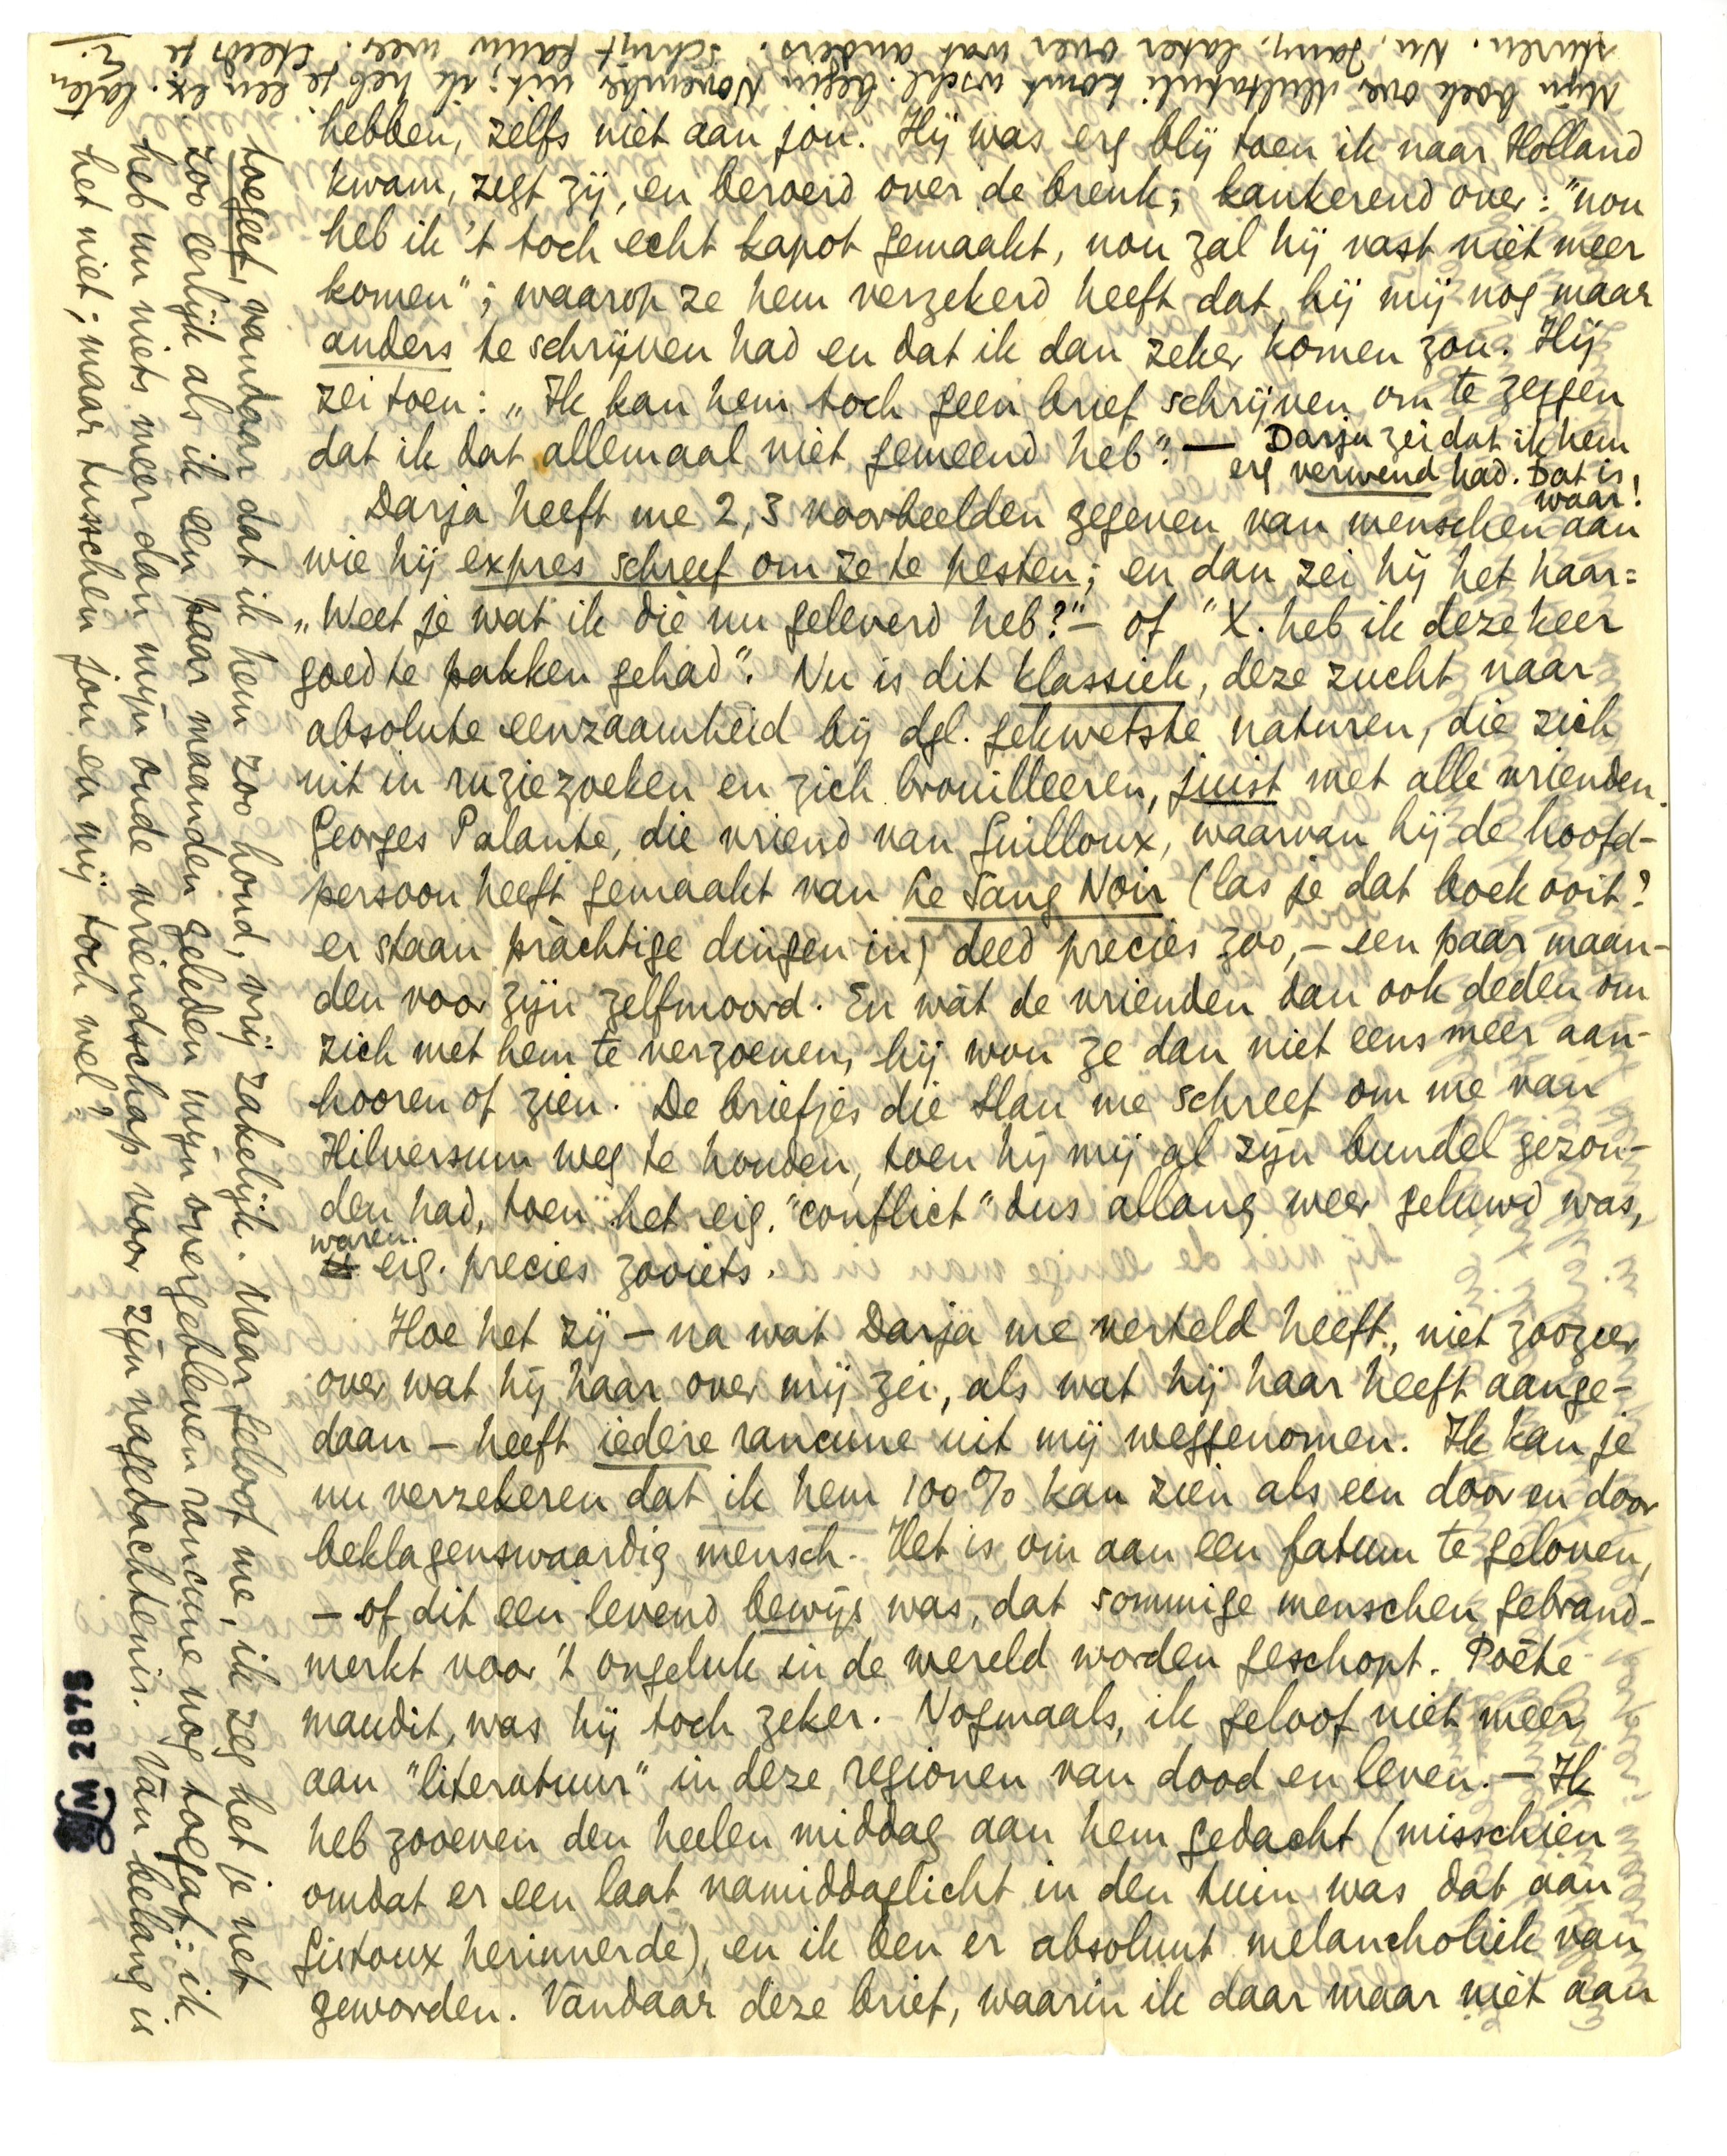 hebben, zelfs niet aan jou. Hij was erg blij toen ik naar Holland
kwam, zegt zij, en beroerd over de breuk; kankerend over: "nou
heb ik 't toch echt kapot gemaakt, nou zal hij vast niet meer
komen"; waarop ze hem verzekerd heeft dat hij mij nog maar
anders te schrijven had en dat ik dan zeker komen zou. Hij
zei toen: „Ik kan hem toch geen brief schrijven om te zeggen
dat ik dat allemaal niet gemeend heb". — Darja zei dat ik hem
erg verwend had. Dat is
waar!
Darja heeft me 2, 3 voorbeelden gegeven van menschen aan
wie hij expres schreef om ze te pesten; en dan zei hij het haar:
„Weet je wat ik die nu geleverd heb?" – of "X. heb ik deze keer
goed te pakken gehad". Nu is dit klassiek, deze zucht naar
absolute eenzaamheid bij dgl. gekwetste naturen, die zich
uit in ruziezoeken en zich brouilleeren, juist met alle vrienden.
Georges Palante, die vriend van Guilloux, waarvan hij de hoofd-
persoon heeft gemaakt van Le Sang Noir (las je dat boek ooit?
er staan prachtige dingen in) deed precies zoo, – een paar maan-
den voor zijn zelfmoord. En wàt de vrienden dan ook deden om
zich met hem te verzoenen, hij wou ze dan niet eens meer aan-
hooren of zien. De briefjes die Slau me schreef om me van
Hilversum weg te houden, toen hij mij al zijn bundel gezon-
den had, toen het eig. "conflict" dus allang weer geluwd was,
waren
eig. precies zooiets.
Hoe het zij – na wat Darja me verteld heeft, niet zoozeer
over wat hij haar over mij zei, als wat hij haar heeft aange-
daan – heeft iedere rancune uit mij weggenomen. Ik kan je
nu verzekeren dat ik hem 100% kan zien als een door en door
beklagenswaardig mensch. Het is om aan een fatum te gelooven,
– of dit een levend bewijs was, dat sommige menschen gebrand-
merkt voor 't ongeluk in de wereld worden geschopt. Poète
maudit, was hij toch zeker. Nogmaals, ik geloof niet meer
aan "literatuur" in deze regionen van dood en leven. – Ik
heb zooeven den heelen middag aan hem gedacht (misschien
omdat er een laat namiddaglicht in den tuin was dat aan
Gistoux herinnerde), en ik ben er absoluut melancholiek van
geworden. Vandaar deze brief, waarin ik daar maar niet aan
toegeef, vandaar dat ik hem zoo houd, vrij zakelijk. Maar geloof me, ik zeg het je net
zoo eerlijk als ik een paar maanden geleden mijn overgebleven rancune nog toegaf: ik
heb nu niets meer dan mijn oude vriendschap voor zijn nagedachtenis. Van belang is
het niet; maar tusschen jou en mij toch wel?
Mijn boek over Multatuli komt wschl. begin November uit; ik heb je een ex. laten
sturen. Nu, Jany, later over wat anders. Schrijf gauw weer. Steeds je
E.
M 2878